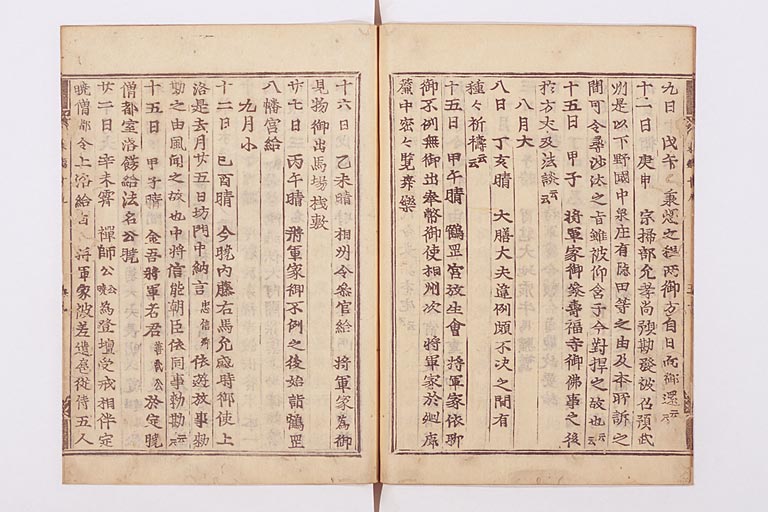 九日 戊午 秉燭之程両御方自日向御還云云
十二日 庚申 宗掃部允孝尚預勘發被召預武
州是以下野國中泉庄有隠田等之由及本所訴之
間可令尋沙汰之旨雖被仰含于今對捍之故也云云
十五日 甲子 将軍家御參壽福寺御佛事之後
於方丈及法談云云
八月大
八日 丁亥晴 大膳大夫違例頗不決之間有
種々祈禱云云
十五日 甲午晴 鶴罡宮放生會 将軍家依聊
御不例無御出奉幣御使相州次 将軍家於廻廊
簾中密々覧舞樂
十六日 乙未晴 相州令參宮給 将軍家為御
見物御出馬場桟敷
廿七日 丙午晴 将軍家御不例之後始詣鶴罡
八幡宮給
九月小
十二日 己酉晴 今曉内藤右馬允盛時御使上
洛是去月廿五日坊門中納言忠信卿依遊放事勅
勘之由風聞之故也中将信能朝臣依同事勅勘云云
十五日 甲子晴 金吾将軍若君善哉公於定曉
僧都室落餝給法名公曉
廿二日 辛未霽 禪師公公曉為登壇受戒相伴定
曉僧都令上洛給 将軍家被差遣扈從侍五人